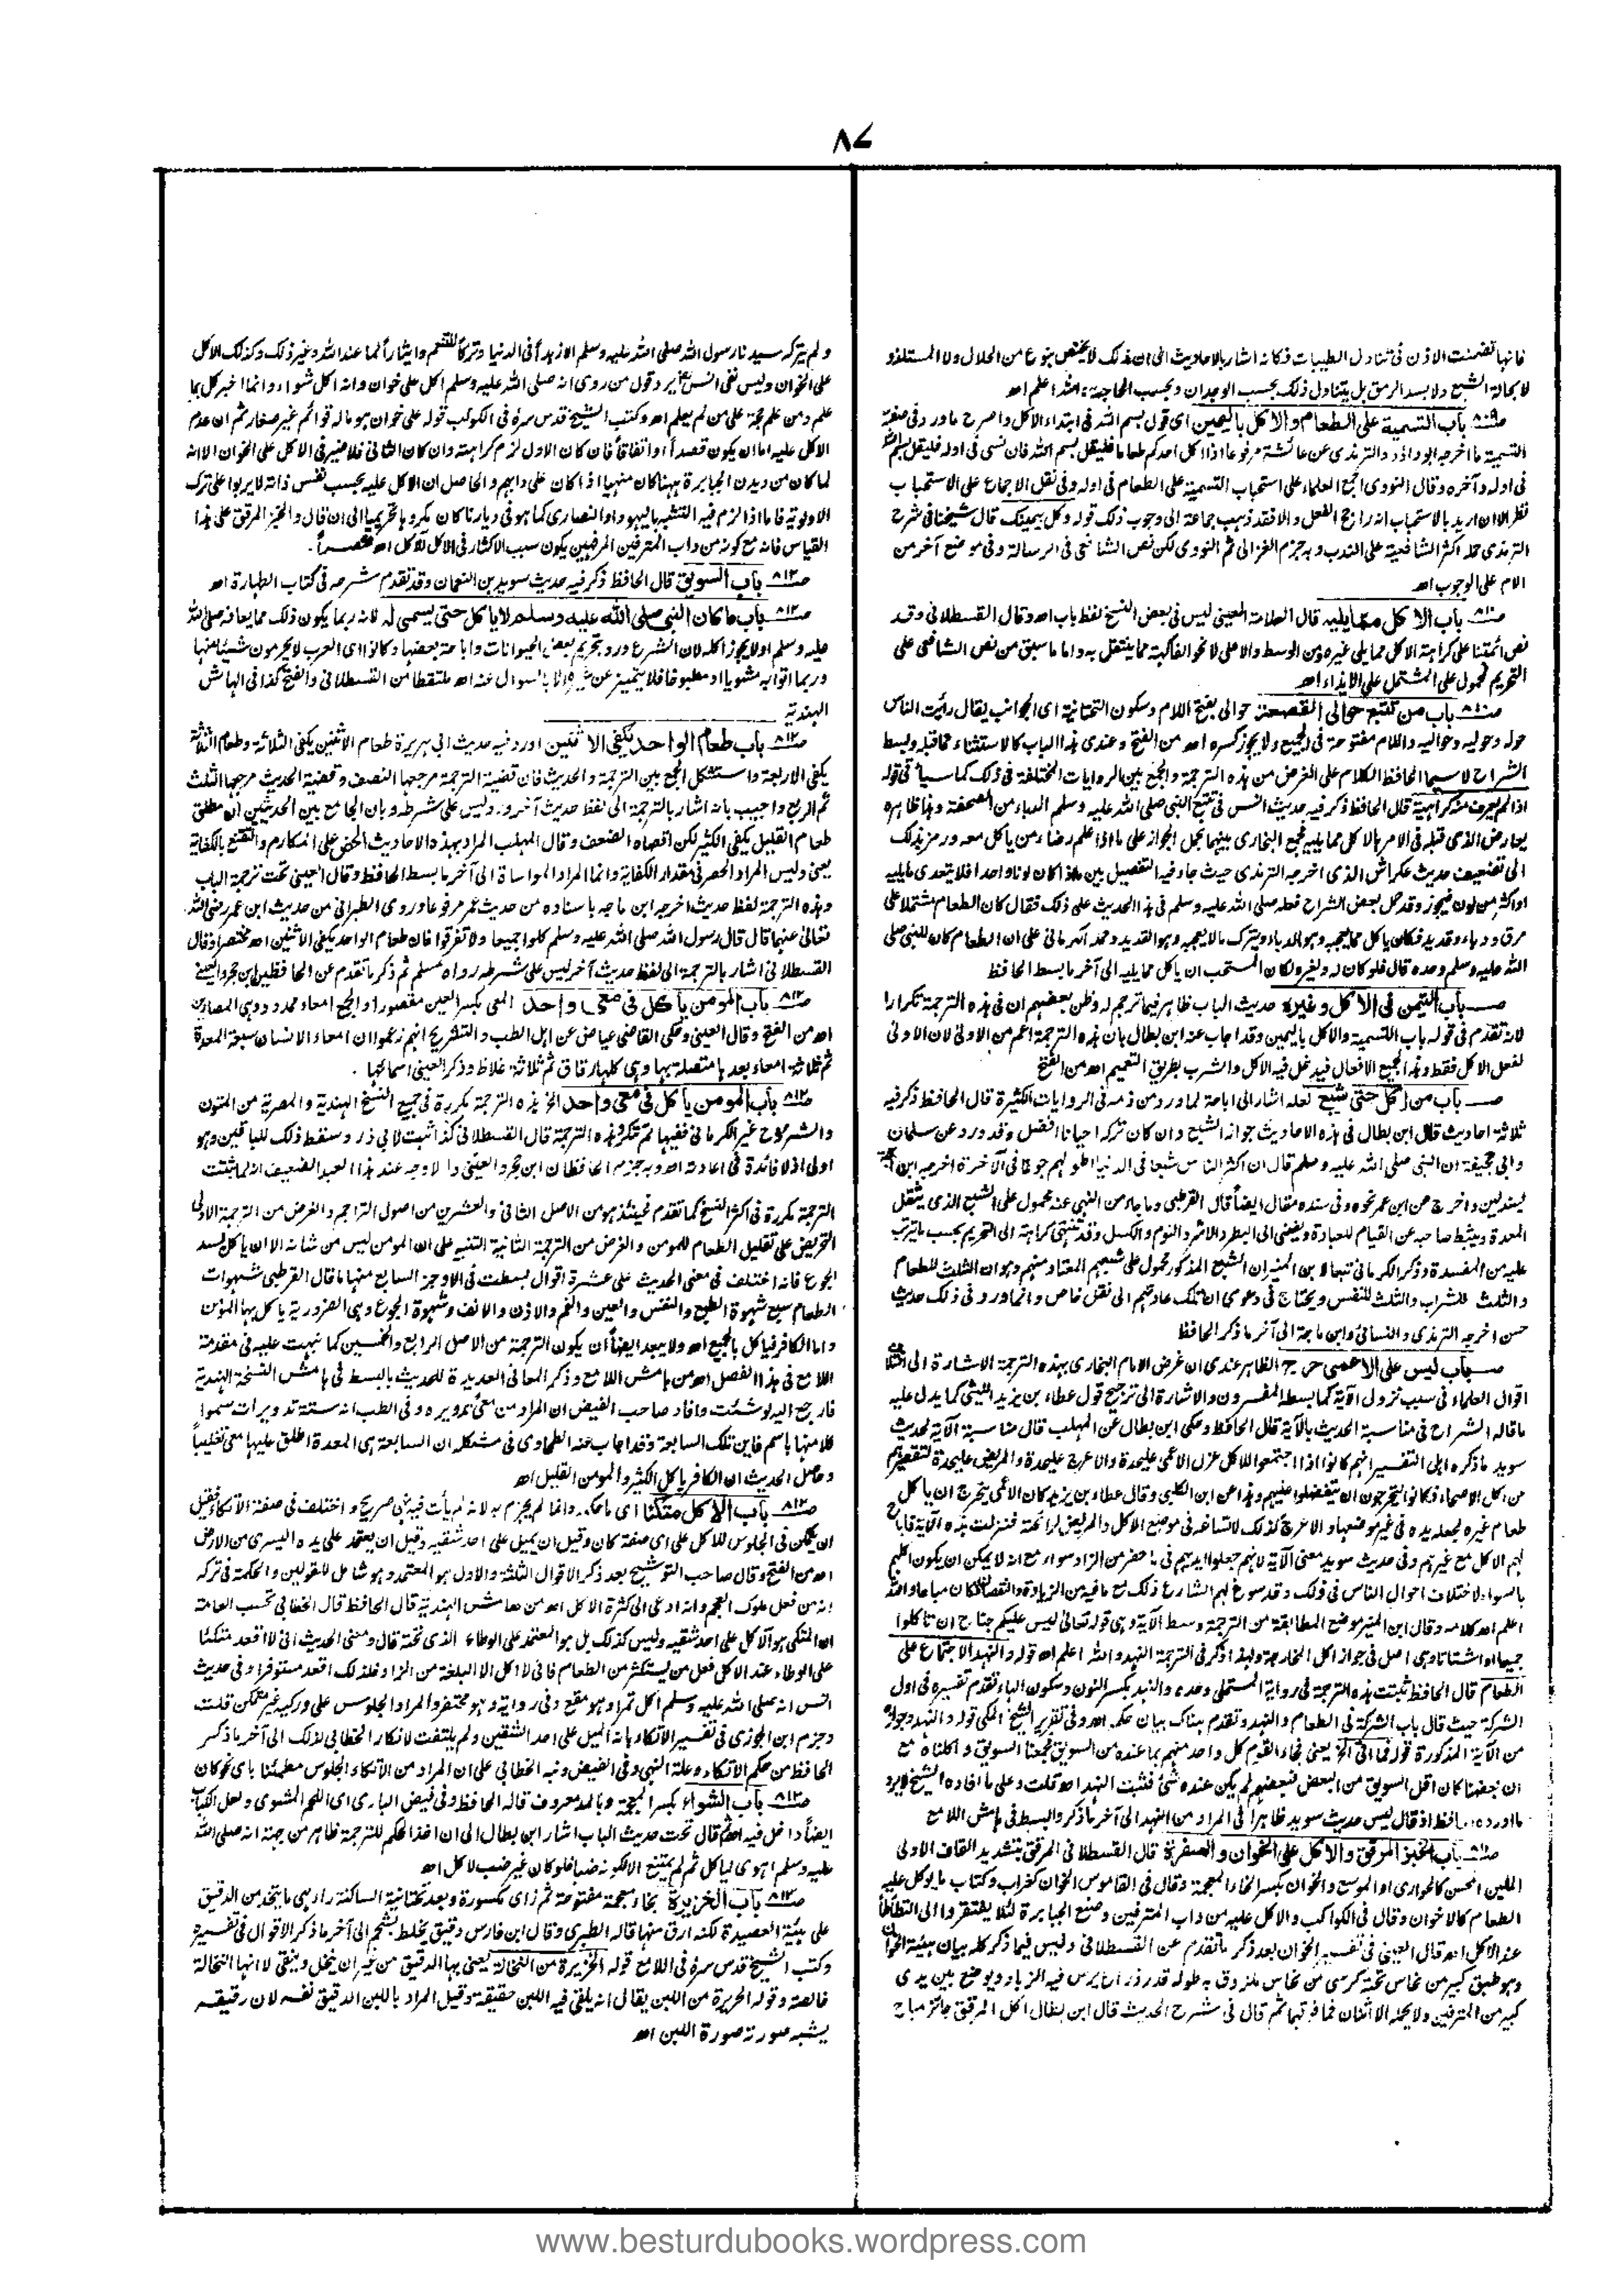 ٨٧
فانها تضمنت الاذن فى تناول الطيبات فكانه اشار بالاحاديث الى ان ذلك لا يختص بنوع من الحلال ولا المستلذ ولا
بحالة الشبع ولا بسد الرمق بل يتناول ذلك بحسب الوجدان وبحسب الحاجة والله اعلم اھ
باب التسمية على الطعام والاكل باليمين اى قول بسم الله فى ابتداء الاكل واصرح ما ورد فى صفة
التسمية ما اخرجه ابوداؤد والترمذى عن عائشة مرفوعا اذا اكل احدكم طعاما فليقل بسم الله فان نسى فى اوله فليقل بسم الله
فى اوله وآخره وقال النووى اجمع العلماء على استحباب التسمية على الطعام فى اوله وفى نقل الاجماع على الاستحباب
نظر الا ان اريد بالاستحباب انه راجح الفعل والا فقد ذهب جماعة الى وجوب ذلك قوله وكل بيمينك قال شيخنا فى شرح
الترمذى حمله اكثر الشافعية على الندب وبه جزم الغزالى ثم النووى لكن نص الشافعى فى الرسالة وفى موضع آخر من
الام على الوجوب اھ
باب الاكل مما يليه قال العلامة العينى ليس فى بعض النسخ لفظ باب اھ وقال القسطلانى وقد
نص ائمتنا على كراهة الاكل مما يلى غيره ومن الوسط والاعلى لا نحو الفاكهة مما ينتقل به واما ما سبق من نص الشافعى على
التحريم فمحمول على المشتمل على الايذاء اھ
باب من تتبع حوالى القصعة حوالى بفتح اللام وسكون التحتانية اى الجوانب يقال رأيت الناس
حوله وحوليه وحواليه واللام مفتوحة فى الجميع ولا يجوز كسره اھ من الفتح وعندى هذا الباب كالاستثناء مما قبله وبسط
الشراح لاسيما الحافظ الكلام على الغرض من هذه الترجمة والجمع بين الروايات المختلفة فى ذلك كما سيأ فى قوله
اذا لم يعرف منه كراهية قال الحافظ ذكر فيه حديث انس فى تتبع النبى صلى الله عليه وسلم الدباء من الصحفة وهذا ظاهره
يعارض الذى قبله فى الامر بالاكل مما يليه فجمع البخارى بينهما بحمل الجواز على ما اذا علم رضاء من يأكل معه ورمز بذلك
الى تضعيف حديث عكراش الذى اخرجه الترمذى حيث جاء فيه التفصيل بين ما اذا كان لونا واحدا فلا يتعدى ما يليه
او اكثر من لون فيجوز وقد حمل بعض الشراح فعله صلى الله عليه وسلم فى هذا الحديث على ذلك فقال كان الطعام مشتملا على
مرق ودباء وقديد فكان يأكل مما يعجبه وهو الدباء ويترك ما لا يعجبه وهو القديد وحمله الكرمانى على ان الطعام كان للنبى صلى
الله عليه وسلم وحده قال فلو كان له ولغيره لكان المستحب ان يأكل مما يليه الى آخر ما بسط الحافظ
باب التيمن فى الاكل وغيره حديث الباب ظاهر فيما ترجم له وظن بعضهم ان فى هذه الترجمة تكرارا
لانه تقدم فى قوله باب التسمية والاكل باليمين وقد اجاب عنه ابن بطال بان هذه الترجمة اعم من الاولى لان الاولى
لفعل الاكل فقط وهذا لجميع الافعال فيدخل فيه الاكل والشرب بطريق التعميم اھ من الفتح
باب من اكل حتى شبع لعله اشار الى اباحة لما ورد من ذمه فى الروايات الكثيرة قال الحافظ ذكر فيه
ثلاثة احاديث قال ابن بطال فى هذه الاحاديث جواز الشبع وان كان تركه احيانا افضل وقد ورد عن سلمان
وابى جحيفة ان النبى صلى الله عليه وسلم قال ان اكثر الناس شبعا فى الدنيا اطولهم جوعا فى الآخرة اخرجه ابن ماجة
بسند لين واخرج عن ابن عمر نحوه وفى سنده مقال ايضا قال القرطبى وما جاء من النهى عنه محمول على الشبع الذى يثقل
المعدة ويثبط صاحبه عن القيام للعبادة ويفضى الى البطر والاشر والنوم والكسل وقد تنتهى كراهته الى التحريم بحسب ما يترتب
عليه من المفسدة وذكر الكرمانى تبعا لابن المنير ان الشبع المذكور محمول على شبعهم المعتاد منهم وهو ان الثلث للطعام
والثلث للشراب والثلث للنفس ويحتاج فى دعوى ان تلك عادتهم الى نقل خاص وانما ورد فى ذلك حديث
حسن اخرجه الترمذى والنسائى وابن ماجة الى آخر ما ذكر الحافظ
باب ليس على الاعمى حرج الظاهر عندى ان غرض الامام البخارى بهذه الترجمة الاشارة الى اختلاف
اقوال العلماء فى سبب نزول الآية كما بسطه المفسرون والاشارة الى ترجيح قول عطاء بن يزيد الليثى كما يدل عليه
ما قاله الشراح فى مناسبة الحديث بالآية قال الحافظ وحكى ابن بطال عن المهلب قال مناسبة الآية لحديث
سويد ما ذكره اهل التفسير انهم كانوا اذا اجتمعوا للاكل عزل الاعمى عليحدة والاعرج عليحدة والمريض عليحدة لتقصيرهم
من اكل الاصحاء فكانوا يتحرجون ان يتفضلوا عليهم وهذا عن ابن الكلبى وقال عطاء بن يزيد كان الاعمى يتحرج ان يأكل
طعام غيره لجعله يده فى غير موضعها والاعرج كذلك لاتساعه فى موضع الاكل والمريض لرائحته فنزلت هذه الآية فاباح
لهم الاكل مع غيرهم وفى حديث سويد معنى الآية لانهم جعلوا ايديهم فى ما حضر من الزاد سواء مع انه لا يمكن ان يكون اكلهم
بالسواء لاختلاف احوال الناس فى ذلك وقد سوغ لهم الشارع ذلك مع ما فيه من الزيادة والنقصان فكان مباحا والله
اعلم اھ كلامه وقال ابن المنير موضع المطابقة من الترجمة وسط الآية وهى قوله تعالى ليس عليكم جناح ان تاكلوا
جميعا او اشتاتا وهى اصل فى جواز اكل المخارجة ولهذا ذكر فى الترجمة النهد والله اعلم اھ قوله والنهد الاجتماع على
الطعام قال الحافظ ثبتت هذه الترجمة فى رواية المستملى وحده والنهد بكسر النون وسكون الهاء تقدم تفسيره فى اول
الشركة حيث قال باب الشركة فى الطعام والنهد وتقدم هناك بيان حكمه اھ وفى تقرير الشيخ المكى قوله والنهد وجوازه
من الآية المذكورة قوله فما اتى الخ يعنى فجاء القوم كل واحد منهم بما عنده من السويق فجمعنا السويق واكلناه مع
ان بعضنا كان اقل السويق من البعض فبعضهم لم يكن عنده شئ فثبت النهد اھ قلت وعلى ما افاده الشيخ لا يرد
ما اورده الحافظ اذ قال ليس حديث سويد ظاهرا فى المراد من النهد الى آخر ما ذكر والبسط فى هامش اللامع
باب الخبز المرقق والاكل على الخوان والسفرة قال القسطلانى المرقق بتشديد القاف الاولى
الملين المحسن كالحوارى او الموسع والخوان بكسر الخاء المعجمة وقال فى القاموس الخوان كغراب وكتاب ما يوكل عليه
الطعام كالاخوان وقال فى الكواكب والاكل عليه من داب المترفين وصنع الجبابرة لئلا يفتقروا الى التطأطأ
عند الاكل اھ قال العينى فى تفسير الخوان بعد ذكر ما تقدم عن القسطلانى وليس فيما ذكر كله بيان هيئة الخوان
وهو طبق كبير من نحاس تحته كرسى من نحاس ملزوق به طوله قدر ذراع يرس فيه الزبادى ويوضع بين يدى
كبير من المترفين ولا يحمله الا اثنان فما فوقهما ثم قال فى شرح الحديث قال ابن بطال اكل المرقق جائز مباح
ولم يتركه سيدنا رسول الله صلى الله عليه وسلم الا زهدا فى الدنيا وتركا للتنعم وايثارا لما عند الله وغير ذلك وكذلك الاكل
على الخوان وليس نفى انس بمؤثر رد قول من روى انه صلى الله عليه وسلم اكل على خوان وانه اكل شواء وانما اخبر كل بما
علم ومن علم حجة على من لم يعلم اھ وكتب الشيخ قدس سره فى الكوكب قوله على خوان هو ما له قوائم غير صغار ثم ان عدم
الاكل عليه اما ان يكون قصدا او اتفاقا فان كان الاول لزم كراهته وان كان الثانى فلا ضير فى الاكل على الخوان الا انه
لما كان من ديدن الجبابرة ههنا كان منهيا اذا كان على دابهم والحاصل ان الاكل عليه بحسب نفس ذاته لا يربوا على ترك
الاولوية فاما اذا لزم فيه التشبه باليهود او النصارى كما هو فى ديارنا كان مكروها تحريميا الى ان قال والخبز المرقق على هذا
القياس فانه مع كونه من داب المترفين المرفهين يكون سبب الاكثار فى الاكل للآكل اھ مختصراً۔
باب السويق قال الحافظ ذكر فيه حديث سويد بن النعمان وقد تقدم شرحه فى كتاب الطهارة اھ
باب ما كان النبى صلى الله عليه وسلم لا يأكل حتى يسمى له لانه ربما يكون ذلك مما يعافه صلى الله
عليه وسلم اولا يجوز اكله لان الشرع ورد بتحريم بعض الحيوانات واباحة بعضها وكانوا اى العرب لا يحرمون شيئا منها
وربما اتوا به مشويا او مطبوخا فلا يتميز عن غيره الا بالسوال عنه اھ ملتقطا من القسطلانى والفتح كذا فى الهامش
الهندية
باب طعام الواحد يكفى الاثنين اورد فيه حديث ابى هريرة طعام الاثنين يكفى الثلاثة وطعام الثلاثة
يكفى الاربعة واستشكل الجمع بين الترجمة والحديث فان قضية الترجمة مرجعها النصف وقضية الحديث مرجعها الثلث
ثم الربع واجيب بانه اشار بالترجمة الى لفظ حديث آخر ورد ليس على شرطه وبان الجامع بين الحديثين ان مطلق
طعام القليل يكفى الكثير لكن اقصاه الضعف وقال المهلب المراد بهذه الاحاديث الحض على المكارم والتقنع بالكفاية
يعنى وليس المراد الحصر فى مقدار الكفاية وانما المراد المواساة الى آخر ما بسط الحافظ وقال العينى تحت ترجمة الباب
وهذه الترجمة لفظ حديث اخرجه ابن ماجه باسناده من حديث عمر مرفوعا وروى الطبرانى من حديث ابن عمر رضى الله
تعالى عنهما قال قال رسول الله صلى الله عليه وسلم كلوا جميعا ولا تفرقوا فان طعام الواحد يكفى الاثنين اھ مختصرا وقال
القسطلانى اشار بالترجمة الى لفظ حديث آخر ليس على شرطه رواه مسلم ثم ذكر ما تقدم عن الحافظين ابن حجر والعينى
باب المومن يأكل فى معى واحد المعى بكسر العين مقصورا والجمع امعاء ممدود وهى المصارين
اھ من الفتح وقال العينى وحكى القاضى عياض عن اهل الطب والتشريح انهم زعموا ان امعاء الانسان سبعة المعدة
ثم ثلاثة امعاء بعدها متصلة بها وهى كلها رقاق ثم ثلاثة غلاظ وذكر العينى اسمائها۔
باب المومن يأكل فى معى واحد الخ هذه الترجمة مكررة فى جميع النسخ الهندية والمصرية من المتون
والشروح غير الكرمانى ففيها لم تكرر هذه الترجمة قال القسطلانى كذا ثبت لابى ذر وسقط ذلك للباقين وهو
اولى اذ لا فائدة فى اعادته اھ وبه جزم الحافظان ابن حجر والعينى والاوجه عند هذا العبد الضعيف انه لما ثبتت
الترجمة مكررة فى اكثر النسخ كما تقدم فحينئذ هو من الاصل الثانى والعشرين من اصول التراجم والغرض من الترجمة الاولى
التحريض على تقليل الطعام للمومن والغرض من الترجمة الثانية التنبيه على ان المومن ليس من شانه الا ان ياكل لسد
الجوع فانه اختلف فى معنى الحديث على عشرة اقوال بسطت فى الاوجز السابع منها ما قال القرطبى شهوات
الطعام سبع شهوة الطبع والنفس والعين والفم والاذن والانف وشهوة الجوع وهى الضرورية ياكل بها المؤمن
واما الكافر فياكل بالجميع اھ ولا يبعد ايضا ان يكون الترجمة من الاصل الرابع والخمسين كما نبهت عليه فى مقدمة
اللامع فى هذا الفصل اھ من هامش اللامع وذكر المعانى العديدة للحديث بالبسط فى هامش النسخة الهندية
فارجع اليه لو شئت وافاد صاحب الفيض ان المراد من معى تدويره وفى الطب انه ستة تدويرات سموا
كلا منها باسم فاين تلك السابعة وقد اجاب عنه الطحاوى فى مشكله ان السابعة هى المعدة اطلق عليها معى تغليباً
وحاصل الحديث ان الكافر ياكل الكثير والمومن القليل اھ
باب الاكل متكئا اى ما حكمه وانما لم يجزم به لانه لم يأت فيه نهى صريح واختلف فى صفة الاتكاء فقيل
ان يتمكن فى الجلوس للاكل على اى صفة كان وقيل ان يميل على احد شقيه وقيل ان يعتمد على يده اليسرى من الارض
اھ من الفتح وقال صاحب التوشيح بعد ذكر الاقوال الثلثة والاول هو المعتمد وهو شامل للقولين والحكمة فى تركه
انه من فعل ملوك العجم وانه ادعى الى كثرة الاكل اھ من هامش الهندية قال الحافظ قال الخطابى تحسب العامة
ان المتكى هو الآكل على احد شقيه وليس كذلك بل هو المعتمد على الوطاء الذى تحته قال ومعنى الحديث انى لا اقعد متكئا
على الوطاء عند الاكل فعل من يستكثر من الطعام فانى لا اكل الا البلغة من الزاد فلذلك اقعد مستوفزا وفى حديث
انس انه صلى الله عليه وسلم اكل تمرا وهو مقع وفى رواية وهو محتفز والمراد الجلوس على وركيه غير متمكن قلت
وجزم ابن الجوزى فى تفسير الاتكاء بانه الميل على احد الشقين ولم يلتفت لانكار الخطابى لذلك الى آخر ما ذكر
الحافظ من حكم الاتكاء وعلة النهى وفى الفيض ونبه الخطابى على ان المراد من الاتكاء الجلوس مطمئنا باى نحو كان
باب الشواء بكسر المعجمة وبالمد معروف قاله الحافظ وفى فيض البارى اى اللحم المشوى ولعل الكباب
ايضاً داخل فيه اھ ثم قال تحت حديث الباب اشار ابن بطال الى ان اخذ الحكم للترجمة ظاهر من جهة انه صلى الله
عليه وسلم اهوى لياكل ثم لم يمتنع الا لكونه ضبا فلو كان غير ضب لاكل اھ
باب الخزيرة بخاء معجمة مفتوحة ثم زاى مكسورة وبعد تحتانية الساكنة راء هى ما يتخذ من الدقيق
على هيئة العصيدة لكنه ارق منها قاله الطبرى وقال ابن فارس دقيق يخلط بشحم الى آخر ما ذكر الاقوال فى تفسيره
وكتب الشيخ قدس سره فى اللامع قوله الخزيرة من النخالة يعنى بها الدقيق من غير ان ينخل وينقى لا انها النخالة
خالصة وقوله الحريرة من اللبن يقال انه يلقى فيه اللبن حقيقة وقيل المراد باللبن الدقيق نفسه لان رقيقه
يشبه صورته صورة اللبن اھ
www.besturdubooks.wordpress.com